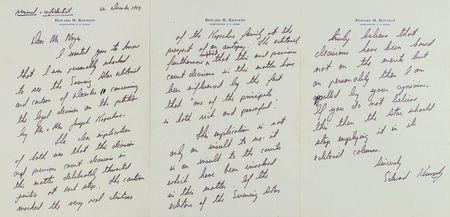 personal - confidential
22 December 1969
Dear Mr. Noyes
I wanted you to know
that I am personally shocked
to see the Evening Star editorial
and cartoon of December 11 concerning
the legal decision on the petition
by Mr. + Mrs. Joseph Kopechne.
The clear implication
of both was that the decision
and previous court decisions in
this matter deliberately thwarted
justice at each step. The cartoon
mocked the very real desires
EDWARD M. KENNEDY
WASHINGTON, D. C. 20510
of the Kopechne family at the
prospect of an autopsy. The editorial
furthermore that this and previous
court decisions in this matter have
been influenced by the fact
that "one of the principals
is both rich and powerful".
The implication is not
only an insult to me it
is an insult to the courts
which have been involved
in this matter. If the
editors of the Evening Star
EDWARD M. KENNEDY
WASHINGTON, D. C. 20510
truly believe that
decisions have been based
not on the merits but
on personality then I am
appalled by your cynicism.
If you do not believe
this then the Star should
stop implying it in its
editorial columns.
Sincerely
Edward Kennedy